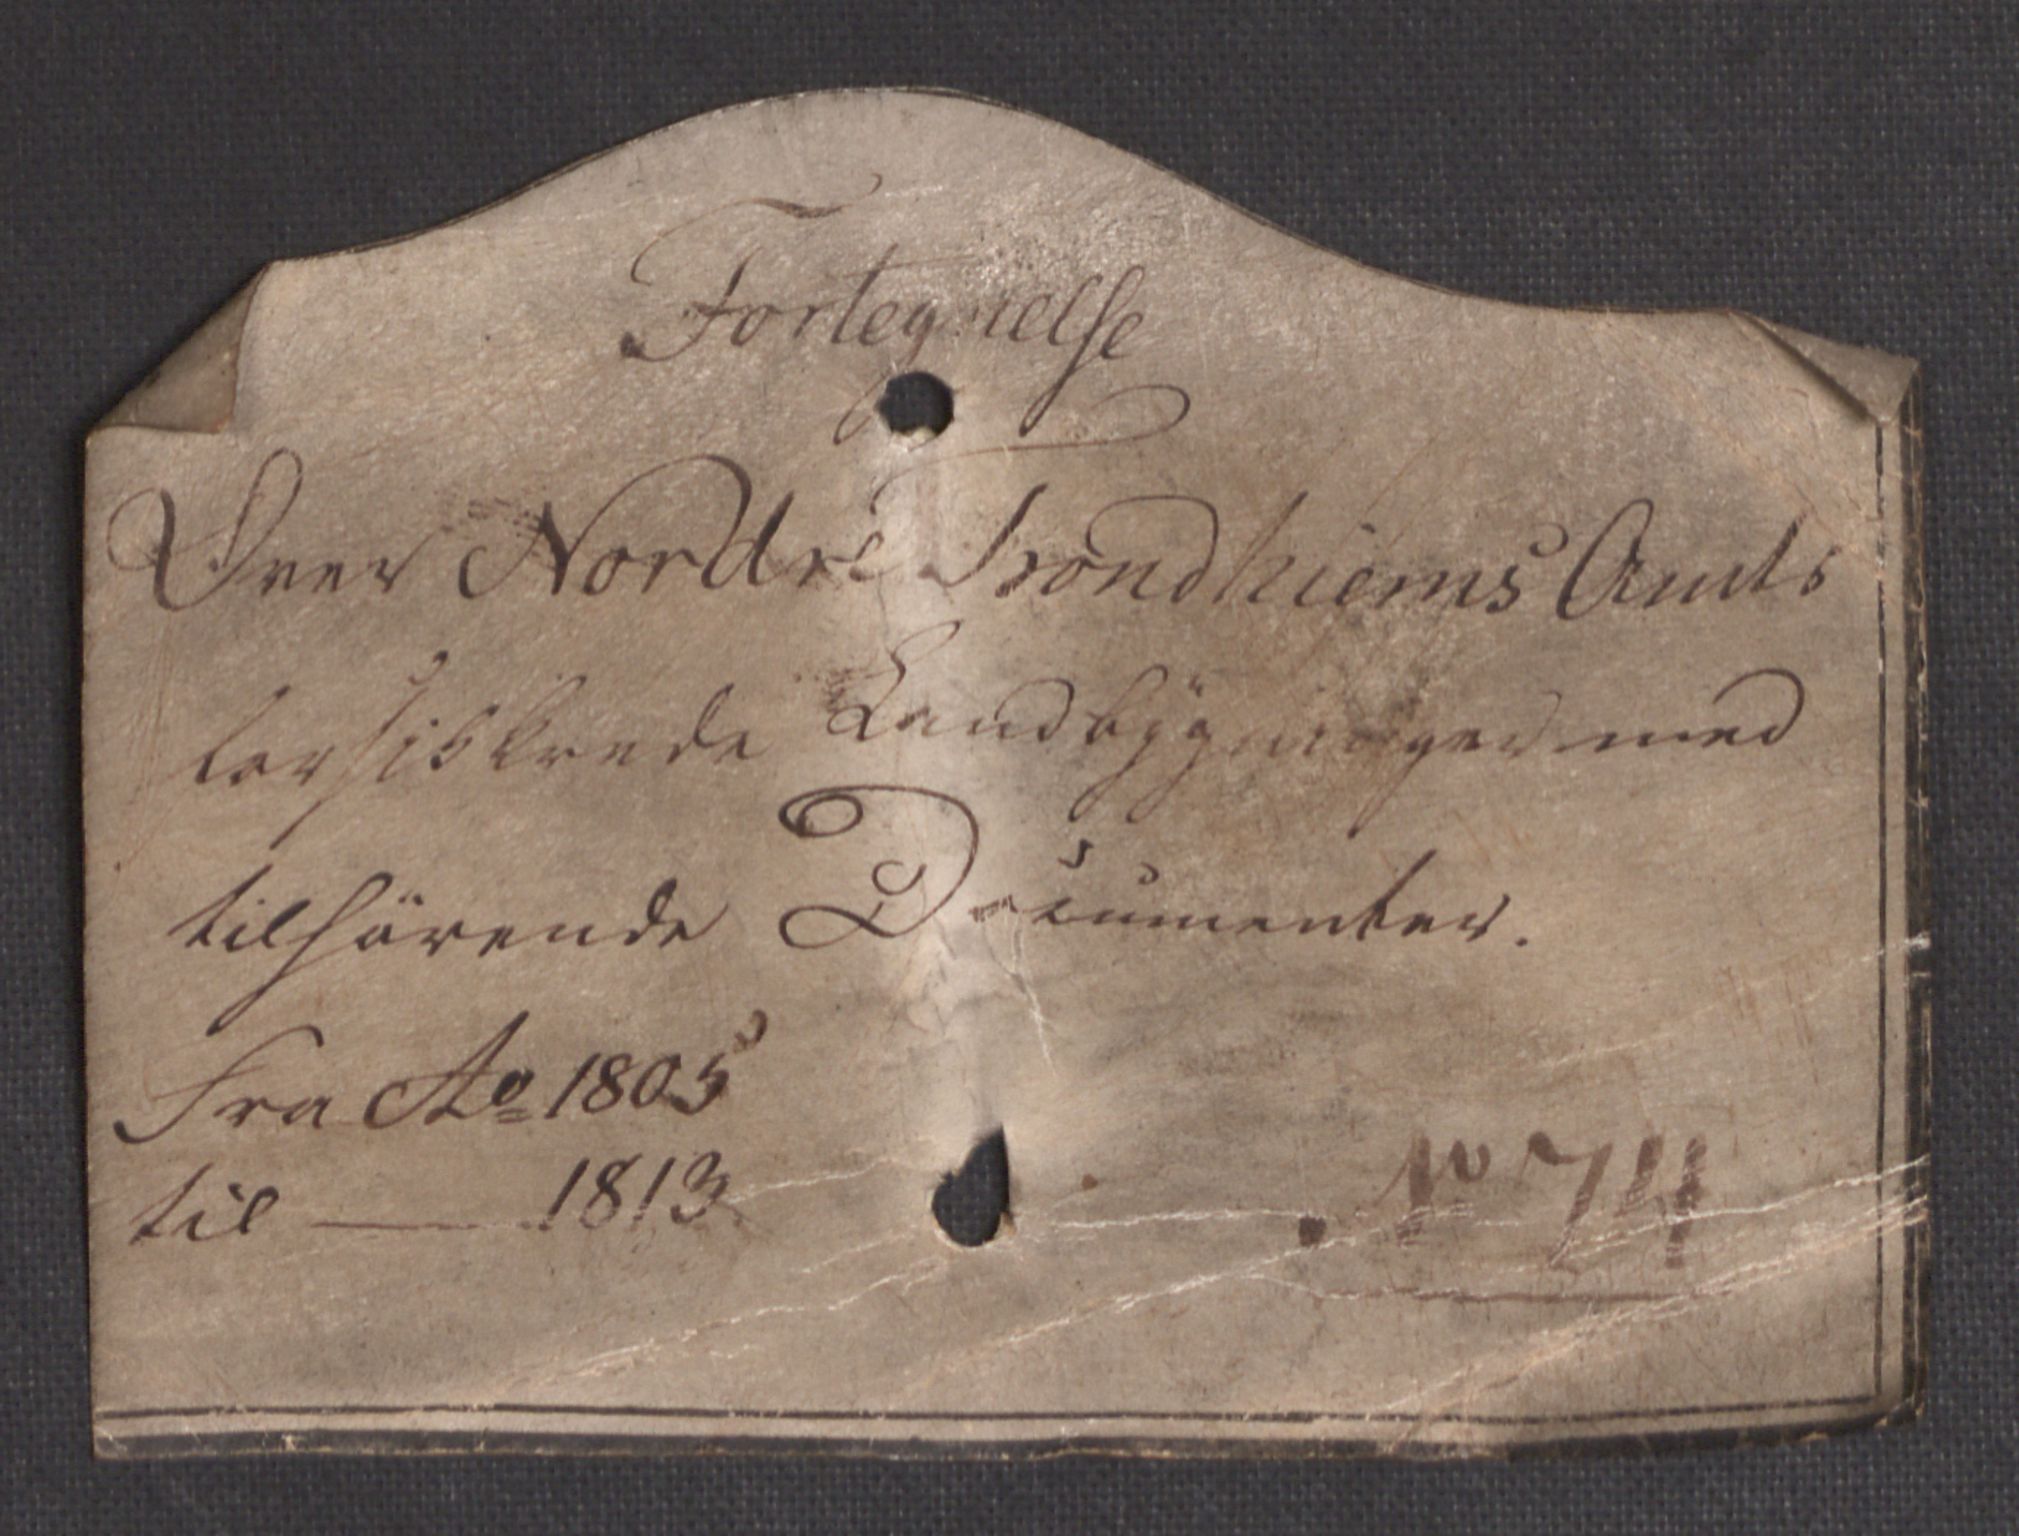 Fortegnelse
Over Nordre Trondhiems Amts
forsikkrede Landbÿgninger med
tilhörende Documenter.
Fra Ao 1805
til — 1813
No 74